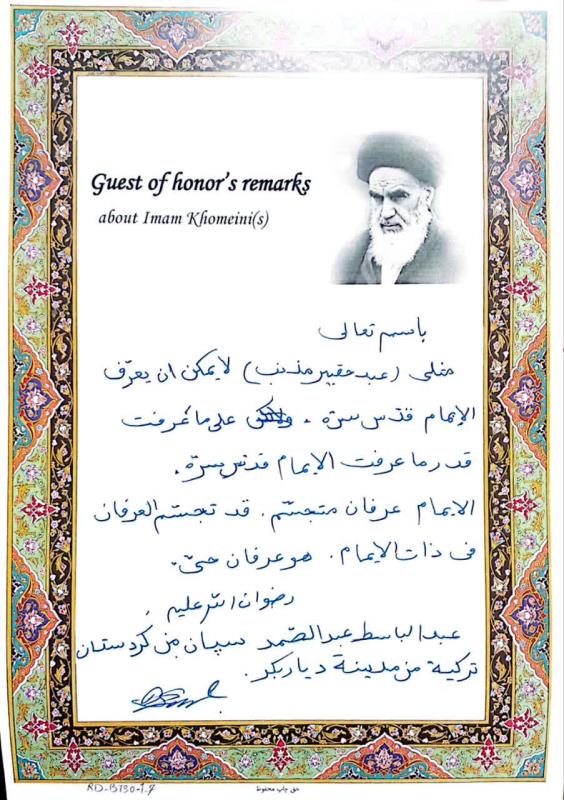 Guest of honor's remarks
about Imam Khomeini(s)
باسم تعالى
مثلى (عبد حقير مذنب) لا يمكن ان يعرّف
الإمام قدّس سرّه . على ما عرفت
قدر ما عرفت الإمام قدّس سرّه .
الإمام عرفان متجسّم . قد تجسّم العرفان
فى ذات الإمام . هو عرفان حىّ .
رضوان الله عليه .
عبد الباسط عبد الصّمد سپان من كردستان
تركية من مدينة دياربكر .
حق چاپ محفوظ